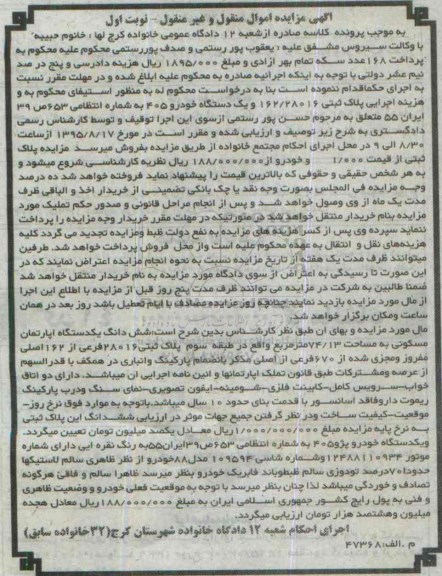 آگهی مزایده اموال منقول و غیر منقول - نوبت اول
به موجب پرونده کلاسه صادره ازشعبه ۱۲ دادگاه عمومی خانواده کرج لها : خانوم حبیبه
با وکالت سیروس مشفق علیه : یعقوب پور رستمی و صدف پوررستمی محکوم علیه محکوم به
پرداخت ۱۶۸ عدد سکه تمام بهار آزادی و مبلغ ۱۸۹۵/۰۰۰ ریال هزینه دادرسی و پنج در صد
نیم عشر دولتی با توجه به اینکه اجرائیه صادره به محکوم علیه ابلاغ شده و در مهلت مقرر نسبت
به اجرای حکم اقدام ننموده است بنا به درخواست محکوم له به منظور استیفای محکوم به و
هزینه اجرایی پلاک ثبتی ۱۶۲/۲۸۰۱۶ و یک دستگاه خودرو ۴۰۵ به شماره انتظامی ۶۵۳ص۳۹
ایران ۵۵ متعلق به مرحوم حسن پور رستمی ازسوی این اجرا توقیف و توسط کارشناس رسمی
دادگستری به شرح زیر توصیف و ارزیابی شده و مقرر است در مورخ ۱۳۹۵/۸/۱۷ ازساعت
۸/۳۰ الی ۹ در محل اجرای احکام مجتمع خانواده از طریق مزایده بفروش میرسد مزایده پلاک
ثبتی از قیمت ۱/۰۰۰ و خودرو از ۱۸۸/۰۰۰/۰۰۰ ریال نظریه کارشناسی شروع میشود و
به هر شخص حقیقی و حقوقی که بالاترین قیمت را پیشنهاد نماید فروخته خواهد شد ده درصد
وجه مزایده فی المجلس بصورت وجه نقد یا چک بانکی تضمینی از خریدار اخذ و الباقی ظرف
مدت یک ماه از وی وصول خواهد شد و پس از انجام مراحل قانونی و صدور حکم تملیک مورد
مزایده بنام خریدار منتقل خواهد شد در صورتیکه در مهلت مقرر خریدار وجه مزایده را پرداخت
ننماید سپرده وی پس از کسر هزینه های مزایده به نفع دولت ضبط ومزایده تجدید می گردد کلیه
هزینه‌های نقل و انتقال به عهده محکوم علیه است واز محل فروش پرداخت خواهد شد. طرفین
میتوانند ظرف مدت یک هفته از تاریخ مزایده نسبت به نحوه انجام مزایده اعتراض نمایند که در
این صورت تا رسیدگی به اعتراض از سوی دادگاه مورد مزایده به نام خریدار منتقل خواهد شد
ضمنا طالبین به شرکت در مزایده می توانند ظرف مدت پنج روز قبل از مزایده با اطلاع این اجرا
از مال مورد مزایده بازدید نمایند چنانچه روز مزایده مصادف با ایام تعطیل باشد روز بعد در همان
ساعت ومکان برگزار خواهد شد.
مال مورد مزایده و بهای آن طبق نظر کارشناس بدین شرح است:شش دانگ یکدستگاه اپارتمان
مسکونی به مساحت ۷۴/۱۳مترمربع واقع در طبقه سوم پلاک ثبتی۲۸۰۱۶فرعی از ۱۶۲اصلی
مفروز ومجزی شده از ۶۷۰فرعی از اصلی مذکر بانضمام پارکینگ وانباری در همکف با قدرالسهم
از عرصه ومشترکات طبق قانون تملک اپارتمانها و ائین نامه اجرایی ان میباشد. دارای دو اتاق
خواب-سرویس کامل-کابینت فلزی-شومینه-ایفون تصویری-نمای سنگ ودرب پارکینگ
ریموت داروفاقد اسانسور با قدمت بنای حدود ۱۰ سال میباشد.باتوجه به موارد فوق نرخ روز-
موقعیت-کیفیت ساخت ودر نظر گرفتن جمیع جهات موثر در ارزیابی ششدانگ این پلاک ثبتی
به نرخ پایه مزایده مبلغ ۱/۰۰۰/۰۰۰/۰۰۰ریال معادل یکصد میلیون تومان تعیین میگردد.
ویکدستگاه خودرو پژو۴۰۵ به شماره انتظامی ۶۵۳ص۳۹ایران۵۵به رنگ نقره ایی دارای شماره
موتور ۱۲۴۸۸۱۱۰۹۳۴وشماره شاسی ۱۰۹۵۹۴ مدل۸۸خودرو از نظر ظاهری سالم لاستیکها
حدودا۷۰درصد تودوزی سالم ظبطوباند فابریک خودرو بنظر میرسد ظاهرا سالم و فاقی هرگونه
تصادف و خوردگی میباشد لذا چنان بنظر میرسد با توجه به موقعیت فعلی خودرو و وضعیت ظاهری
و فنی به پول رایج کشور جمهوری اسلامی ایران به مبلغ ۱۸۸/۰۰۰/۰۰۰ریال معادل هجده
میلیون وهشتصد هزار تومان ارزیابی میگردد.
اجرای احکام شعبه ۱۲ دادگاه خانواده شهرستان کرج(۳۲خانواده سابق)
م.الف:۴۷۳۶۸